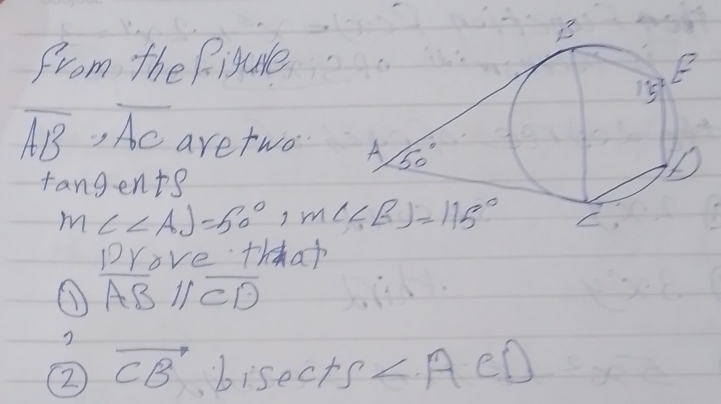 From the figure
AB, AC are two
tangents
m(∠A)=50°, m(∠E)=115°
Prove that
① AB // CD
,
② CB bisects < ACD
A
50°
B
E
115
D
C